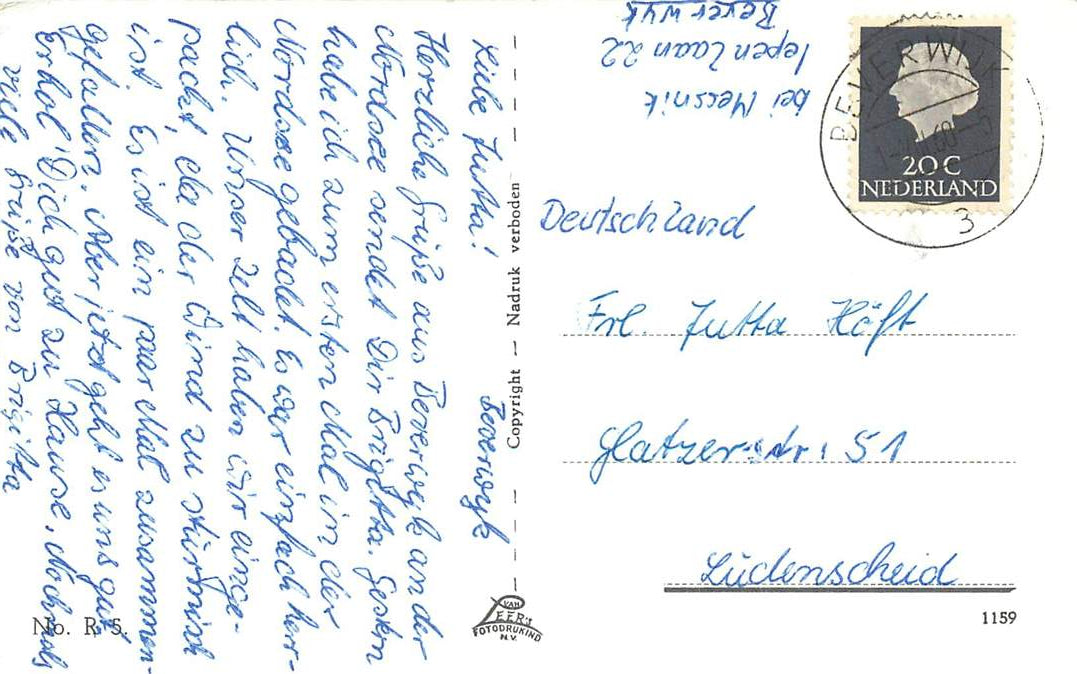 Beverwyk
Liebe Jutta!
Herzliche Grüße aus Beverwyk an der
Nordsee sendet Dir Brigitta. Gestern
habe ich zum ersten Mal in der
Nordsee gebadet. Es war einfach herr-
lich. Unser Zelt haben wir einge-
packt, da der Wind zu stürmisch
ist. Es ist ein paar Mal zusammen-
gefallen. Aber jetzt geht es uns gut.
Erhol' Dich gut zu Hause. Nochmals
viele Grüße von Brigitta
No. R. 5.
Copyright — Nadruk verboden
VAN
LEER'S
FOTODRUKIND
N.V.
bei Messnik
Iepenlaan 22
Beverwyk
BEVERWIJK
68
3
20 C
NEDERLAND
Deutschland
Frl. Jutta Höft
Glatzer-str. 51
Lüdenscheid
1159